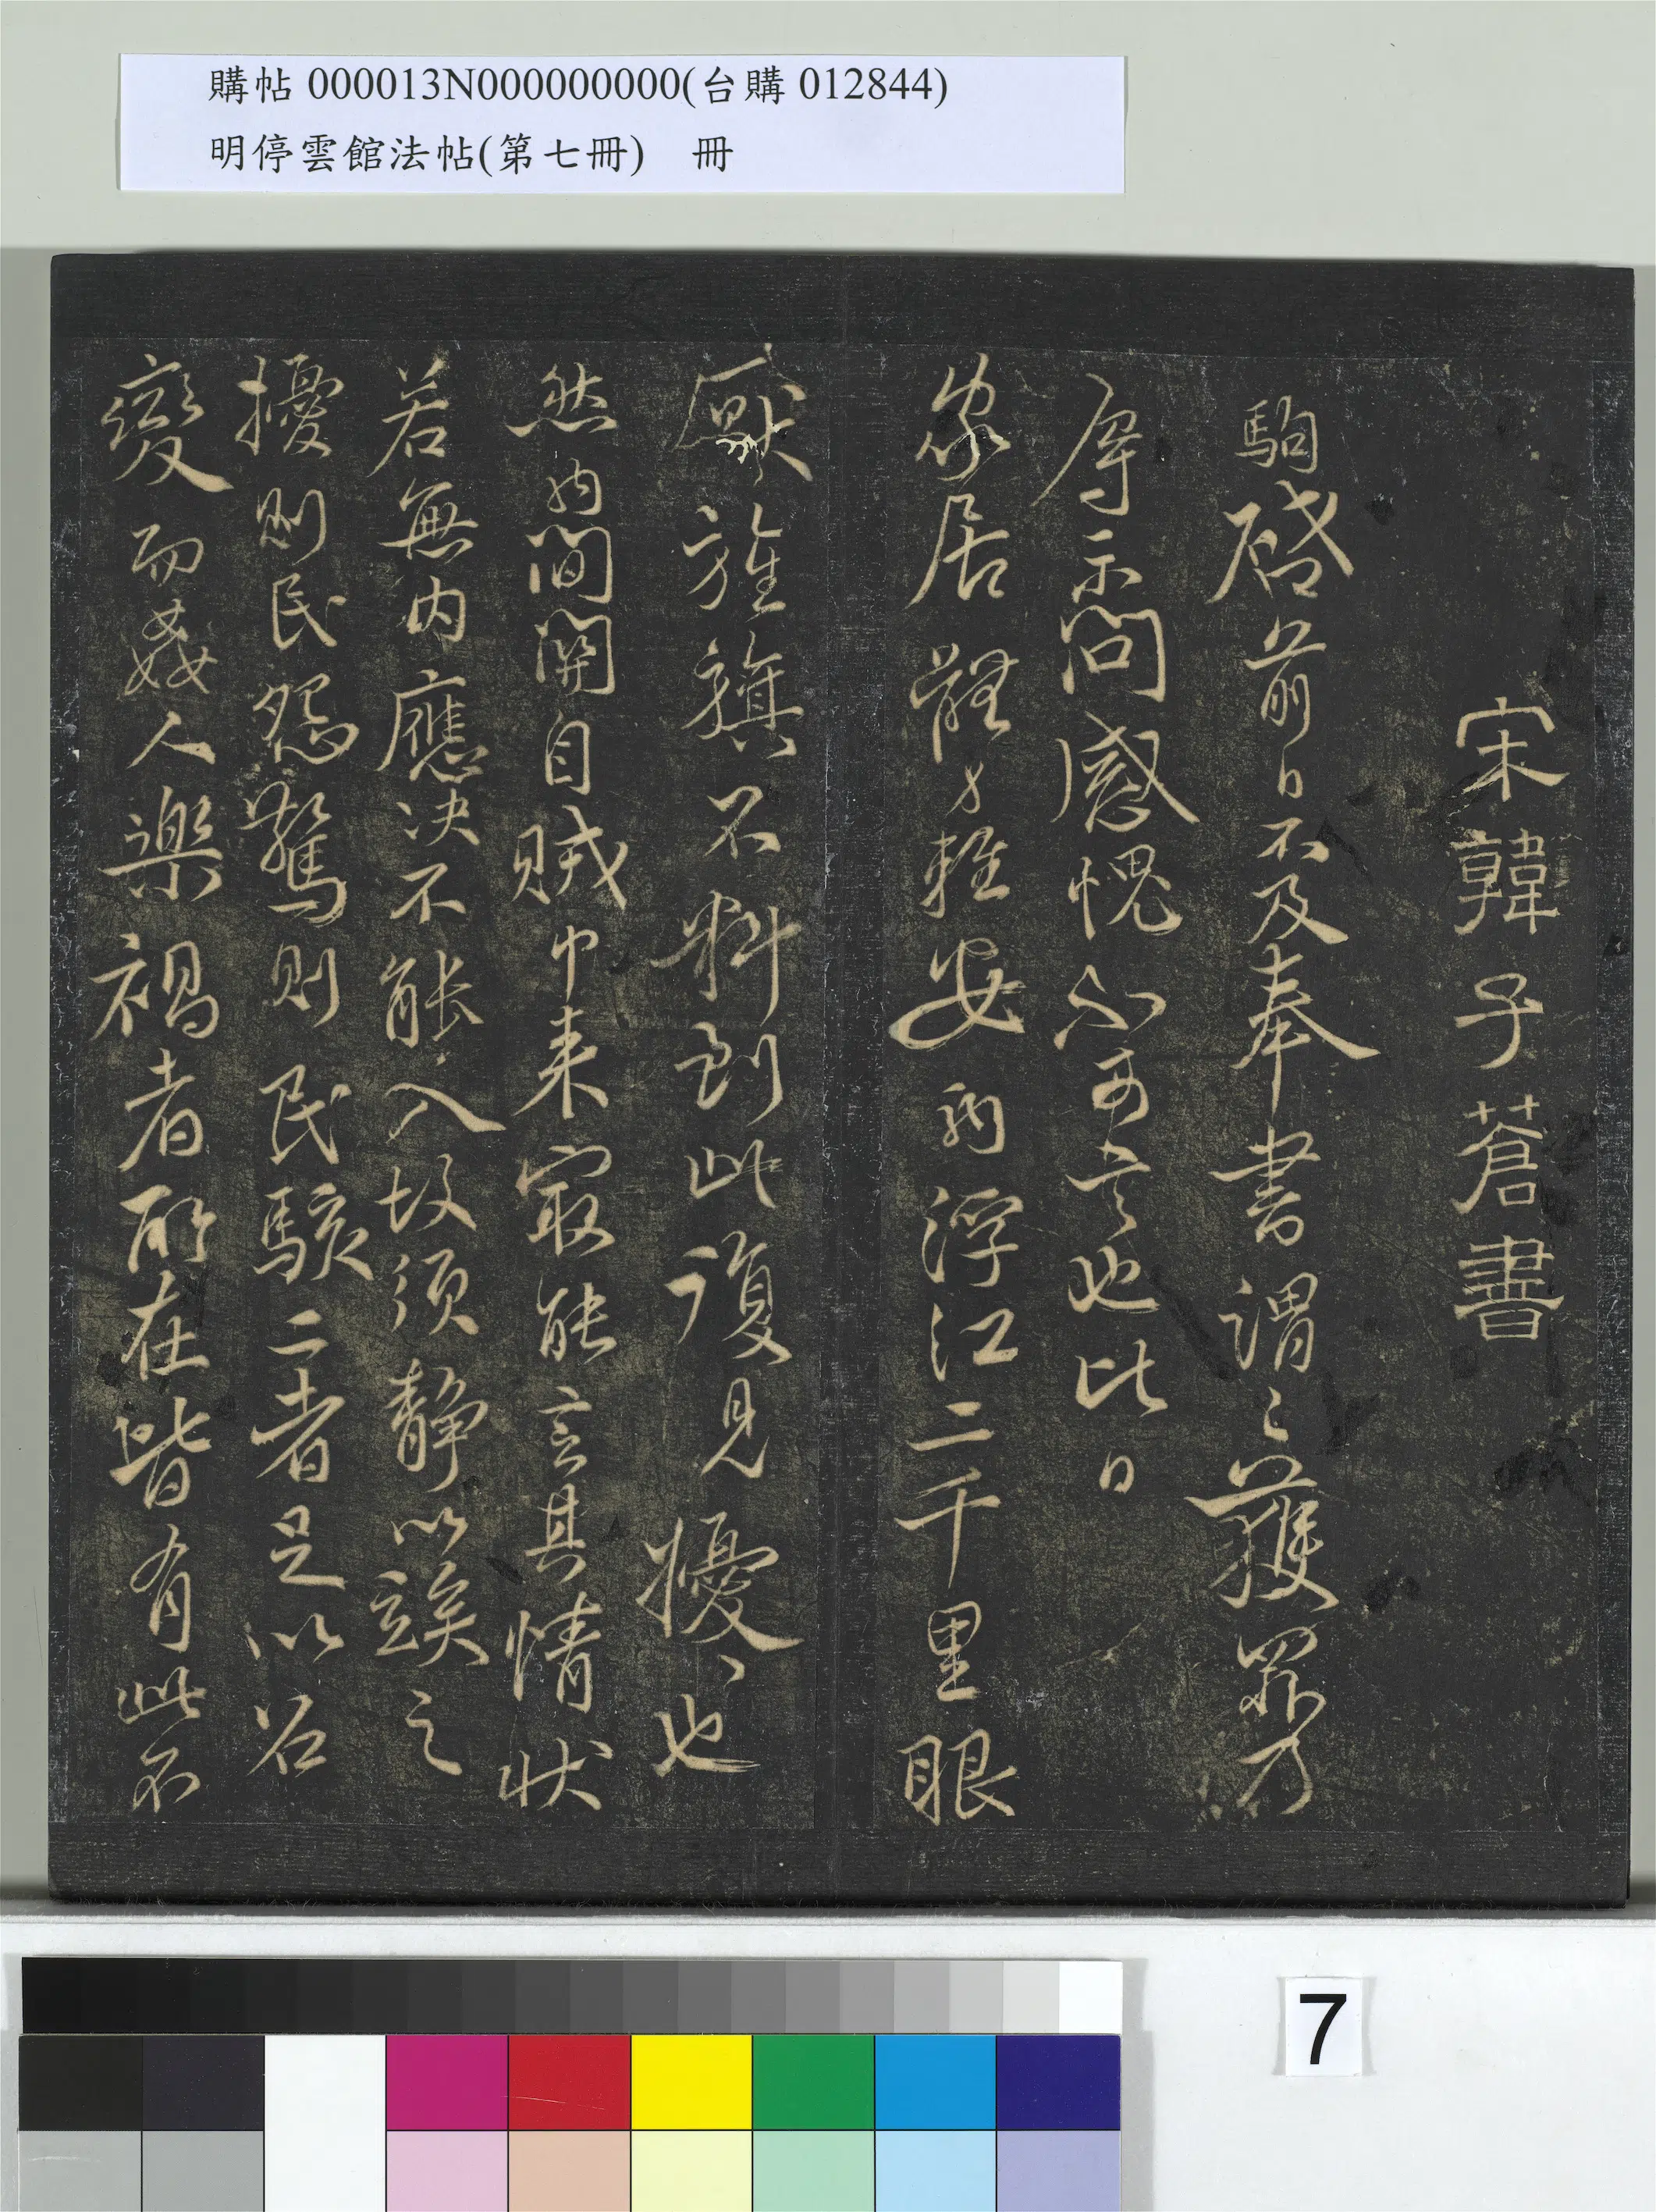 購帖 000013N000000000(台購 012844)
明停雲館法帖(第七冊) 冊
宋韓子蒼書
駒啓前日不及奉書謂之獲罪乃
辱示問感愧不可言也比日
家居
安 浮江二千里眼
厭旌旗不料到此復見擾〻也
然 間關自賊中来寂能言其情状
若無内應决不能入故須静以竢之
擾則民怨驚則民駭二者足以召
變而姦人樂禍者所在皆有此不
7